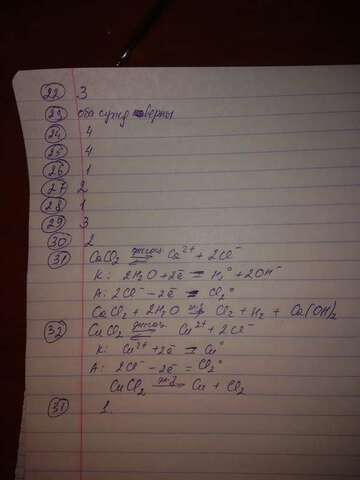 22 3
23 оба сужд верны
24 4
25 4
26 1
27 2
28 1
29 3
30 2
31 CaCl₂ ⇌ Ca²⁺ + 2Cl⁻
K: 2H₂O + 2ē = H₂° + 2OH⁻
A: 2Cl⁻ - 2ē = Cl₂°
CaCl₂ + 2H₂O Cl₂ + H₂ + Ca(OH)₂
32 CuCl₂ ⇌ Cu²⁺ + 2Cl⁻
K: Cu²⁺ + 2ē = Cu°
A: 2Cl⁻ - 2ē = Cl₂°
CuCl₂ Cu + Cl₂
31 1.